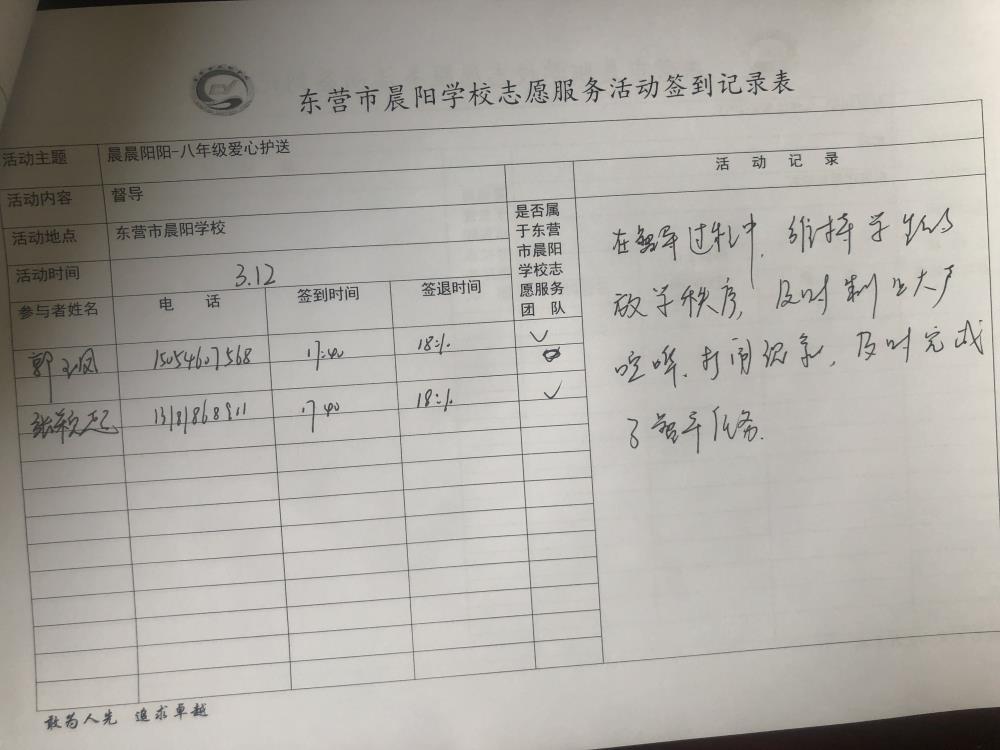 东营市晨阳学校志愿服务活动签到记录表
活动主题 晨晨阳阳-八年级爱心护送
活动内容 督导
活动地点 东营市晨阳学校
活动时间 3.12
参与者姓名 电 话 签到时间 签退时间 是否属于东营市晨阳学校志愿服务团 队
郭玉凤 15054607568 17:40 18:10 ✓
13181868911 17 40 18:10 ✓
活 动 记 录
在督导过程中，维持学生的
放学秩序，及时制止大声
喧哗、打闹现象，及时完成
了督导任务.
敢为人先 追求卓越